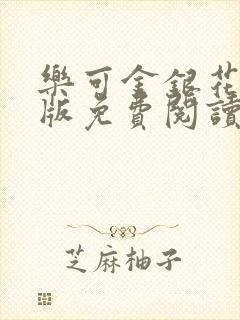 樂可金銀花
版免費閱讀
芝麻柚子